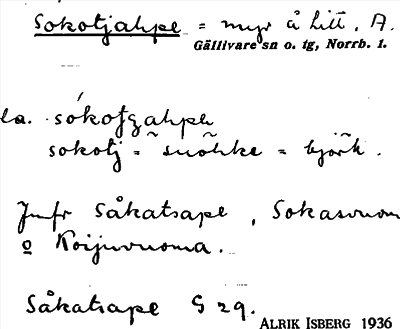 Sokotjahpe = myr å hitt. A.
Gällivare sn o. tg, Norrb. l.
la. sókotgahpe
sokotj = suõhke = björk.
Jmfr Såkatsape, Sokasvuom
o Koijuvuoma.
Såkatsape G 29.
ALRIK ISBERG 1936